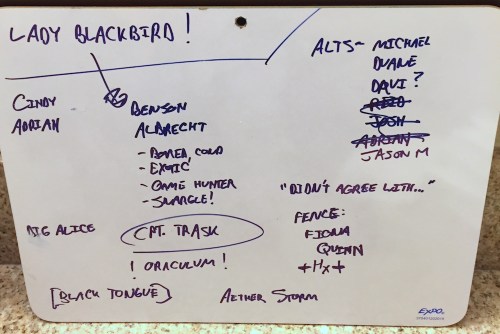 LADY BLACKBIRD!
CINDY
ADRIAN
BENSON
ALBRECHT
- BORED, COLD
- EXOTIC
- GAME HUNTER
- SNARGLE!
BIG ALICE
CPT. TRASK
! ORACULUM !
[BLACK TONGUE]
AETHER STORM
ALTS- MICHAEL
DUANE
DAVI?
REID
JOSH
ADRIAN
JASON M
"DIDN'T AGREE WITH..."
FENCE:
FIONA
QUINN
+Hx+
EXPO